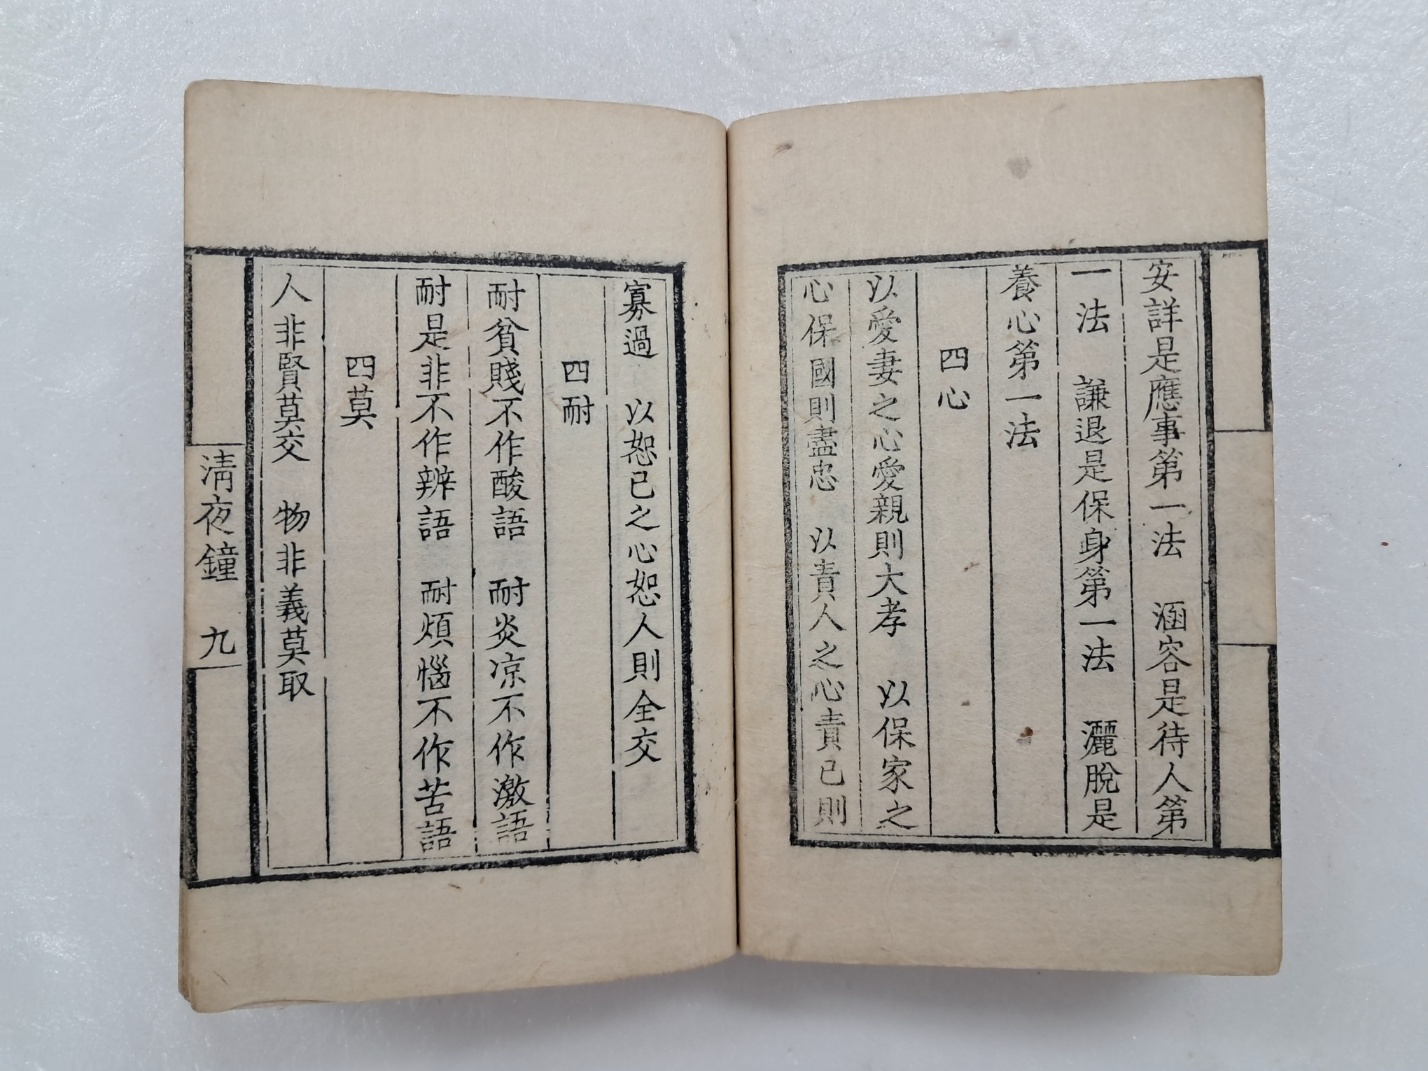 安詳是應事第一法　涵容是待人第
一法　謙退是保身第一法　灑脫是
養心第一法
四心
以愛妻之心愛親則大孝　以保家之
心保國則盡忠　以責人之心責已則
寡過　以恕已之心恕人則全交
四耐
耐貧賤不作酸語　耐炎凉不作激語
耐是非不作辨語　耐煩惱不作苦語
四莫
人非賢莫交　物非義莫取
清夜鐘　九